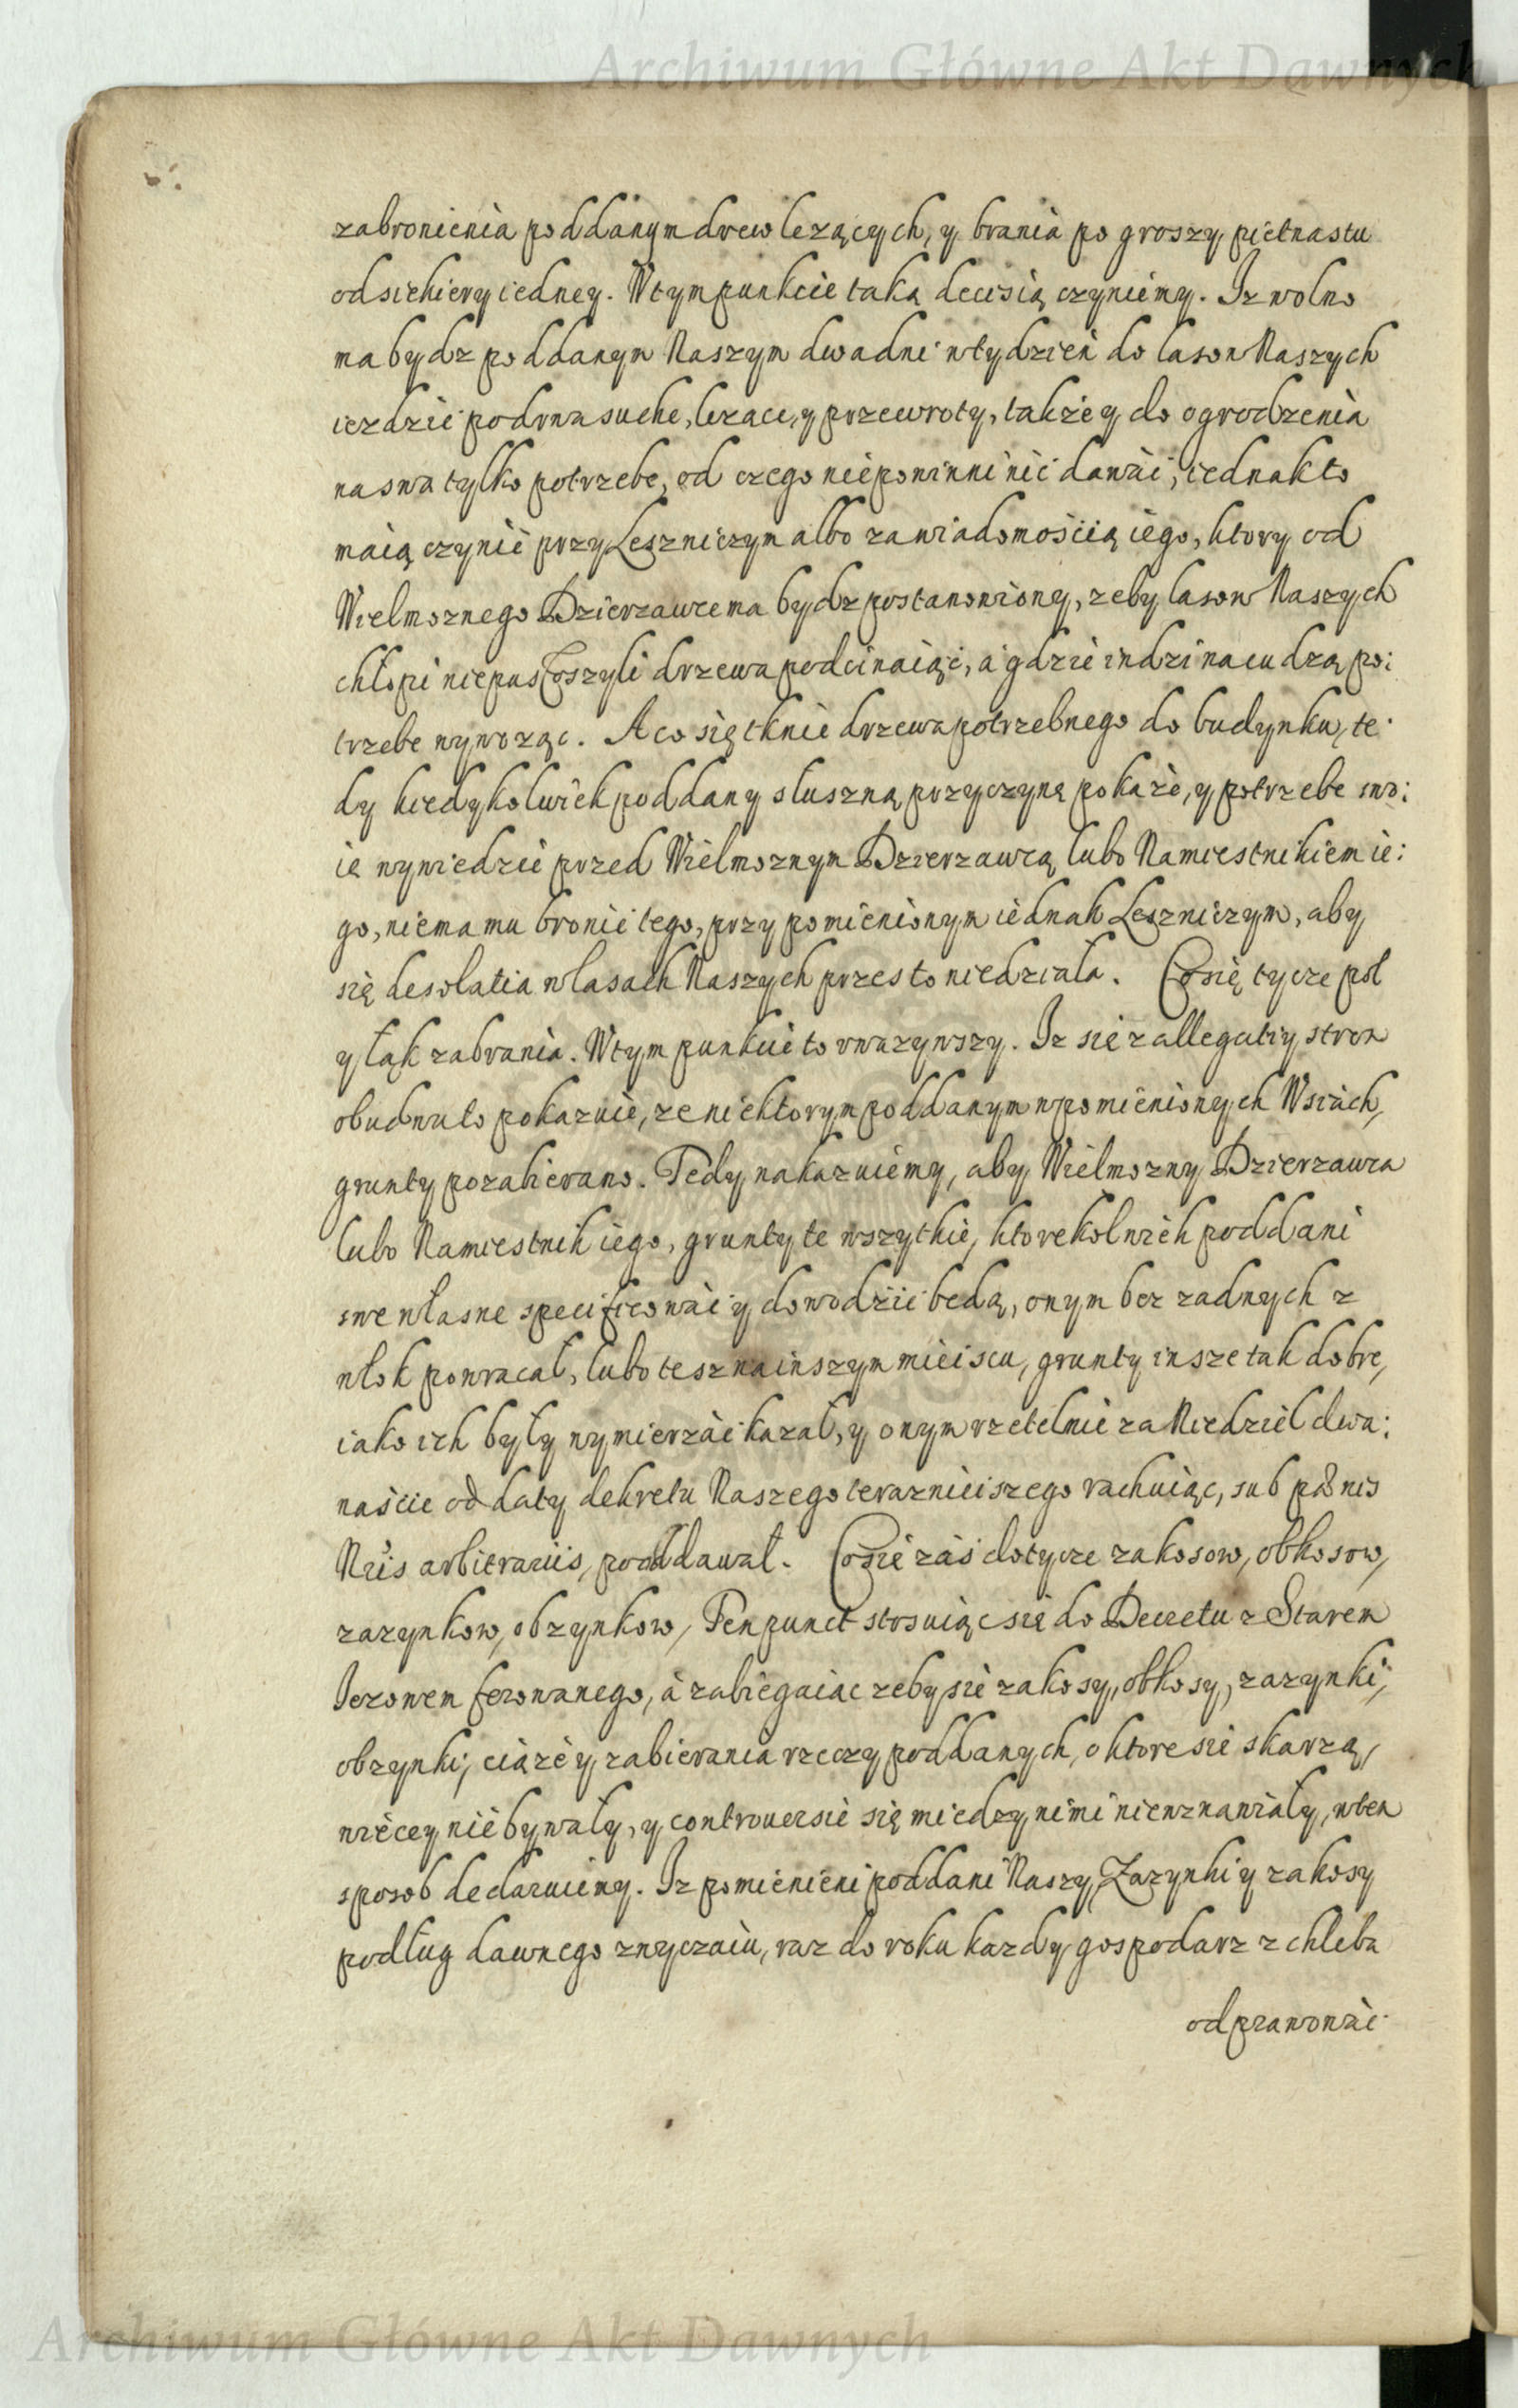 Archiwum Główne Akt Dawnych
zabronienia poddanym drew lezących, y brania po groszy pietnastu
od siekiery iedney. W tym punkcie taką decisią czyniemy. Iz wolno
ma bydz poddanym Naszym dwa dni w tydzień do lasow Naszych
iezdzić po drwa suche, lezace, y przewroty, także y do ogrodzenia
na swą tylko potrzebe, od czego niepowinni nic dawać, iednak to
maią czynić przy Leszniczym albo za wiadomością iego, ktory od
Wielmoznego Dzierzawce ma bydz postanowiony, zeby lasow Naszych
chłopi niepustoszyli drzewa podcinaiąc, a gdzie indzi na cudzą po:
trzebe wywoząc. A co się tknie drzewa potrzebnego do budynku, te:
dy kiedykolwiek poddany słuszną przyczynę pokaże, y potrzebe swo:
ię wywiedzie przed Wielmoznym Dzierzawcą lubo Namiestnikiem ie:
go, niema mu bronić tego, przy pomienionym iednak Leszniczym, aby
się desolatia w lasach Naszych przes to niedziała. Co się tycze pol
y łąk zabrania. W tym punkcie to uwazywszy. Iz się z allegatiy stron
obudwu to pokazuie, ze niektorym poddanym w pomienionych Wsiach,
grunty pozabierano. Tedy nakazuiemy, aby Wielmozny Dzierzawca
lubo Namiestnik iego, grunty te wszytkie, ktorekolwiek poddani
swe własne specificować y dowodzić będą, onym bez zadnych z
włok powracał, lubo tesz na inszym mieiscu, grunty insze tak dobre,
iako ich były wymierzać kazał, y onym rzetelnie za Niedziel dwa:
naście od daty dekretu Naszego teraznieiszego rachuiąc, sub pœnis
Nris arbitrariis, poddawał. Co się zaś dotycze zakosow, obkosow,
zazynkow, obzynkow, Ten punct stosuiąc się do Decretu z Starem
Iezowem ferowanego, à zabiegaiac zeby sie zakosy, obkosy, zazynki,
obzynki, ciąże y zabierania rzeczy poddanych, o ktore sie skarzą,
wiecey nie bywały, y controuersie się miedzy nimi nie wznawiały, w ten
sposob declaruiemy. Iz pomienieni poddani Naszy Zazynki y zakosy
podług dawnego zwyczaiu, raz do roku kazdy gospodarz z chleba
odprawować
Archiwum Główne Akt Dawnych